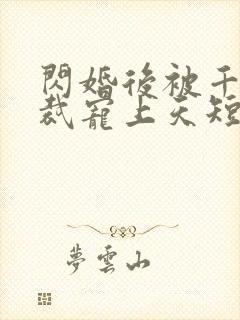 閃婚後被千
裁寵上天短
夢雲山